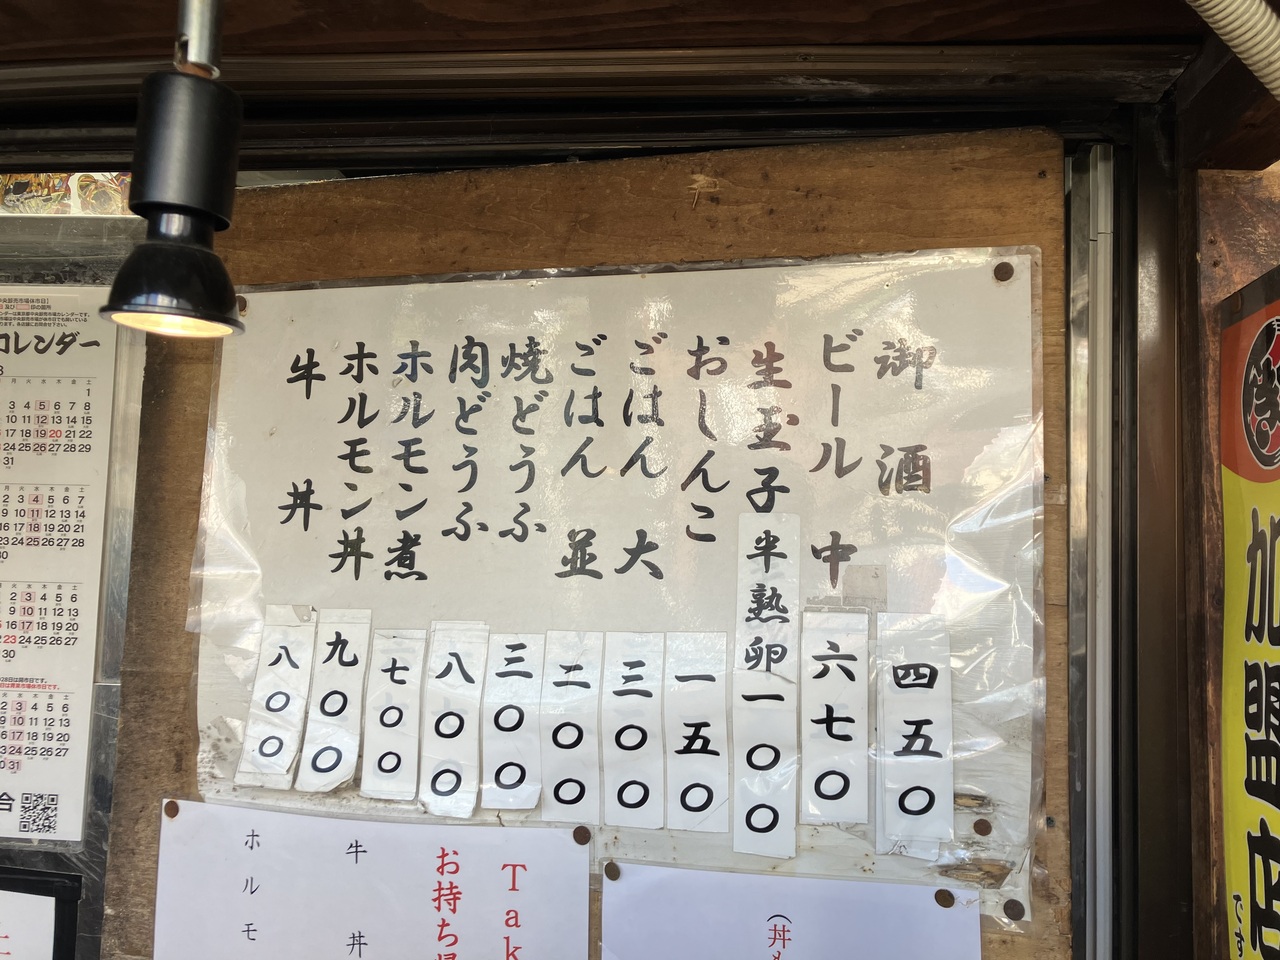 御酒 四五〇
ビール 中 六七〇
生玉子 半熟卵 一〇〇
おしんこ 一五〇
ごはん 大 三〇〇
ごはん 並 二〇〇
焼どうふ 三〇〇
肉どうふ 八〇〇
ホルモン煮 七〇〇
ホルモン丼 九〇〇
牛丼 八〇〇
Tak
お持ち
牛丼
ホルモ
(丼
加盟店
カレンダー